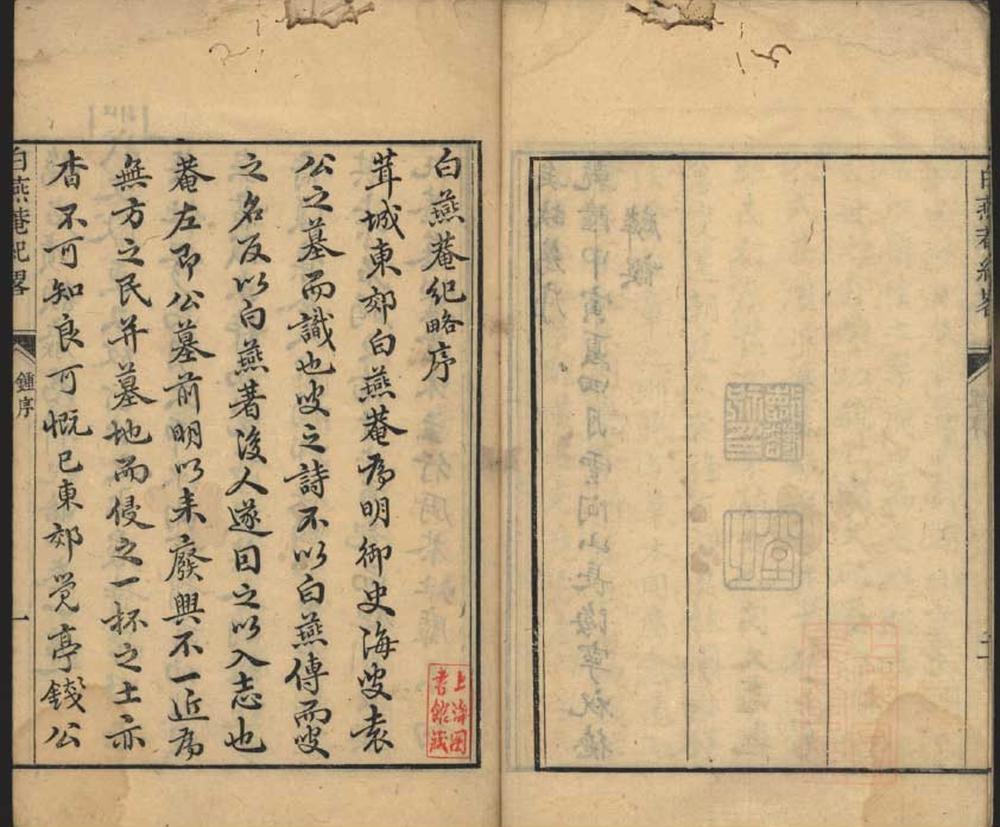 白燕菴紀畧
二
白燕菴紀略序
茸城東郊白燕菴為明御史海叟袁
公之墓而識也叟之詩不以白燕傳而叟
之名反以白燕著後人遂因之以入志也
菴左即公墓前明以来廢興不一近為
無方之民并墓地而侵之一抔之土亦
杳不可知良可慨已東郊覚亭錢公
上海図
書館藏
白燕菴紀畧
鍾序
一